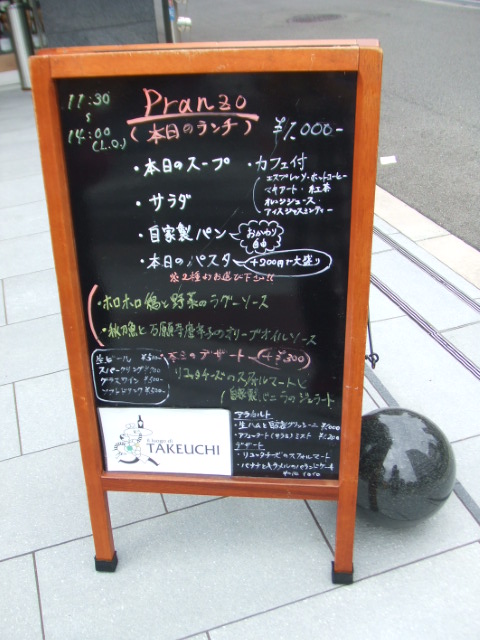 11:30
〜
14:00
(L.O.)
Pranzo
(本日のランチ)
¥1,000.-
・本日のスープ
・サラダ
・自家製パン
おかわり
自由
・本日のパスタ
+200円で大盛り
※2種よりお選び下さい!!
・カフェ付
エスプレッソ・ホットコーヒー
マキアート・紅茶
オレンジジュース・
アイスジャスミンティー
・ホロホロ鶏と野菜のラグーソース
・秋刀魚と石願唐辛子のオリーブオイルソース
・本日のデザート (+¥300)
リコッタチーズのスフォルマートと
自家製 ジェラート
生ビール ¥500-
スパークリング ¥700
グラスワイン ¥500-
アラカルト
・生ハムと自家製グリッシーニ
デザート
・リコッタチーズのスフォルマート
・バナナとキャラメルのパウンドケーキ
Il borgo di
TAKEUCHI